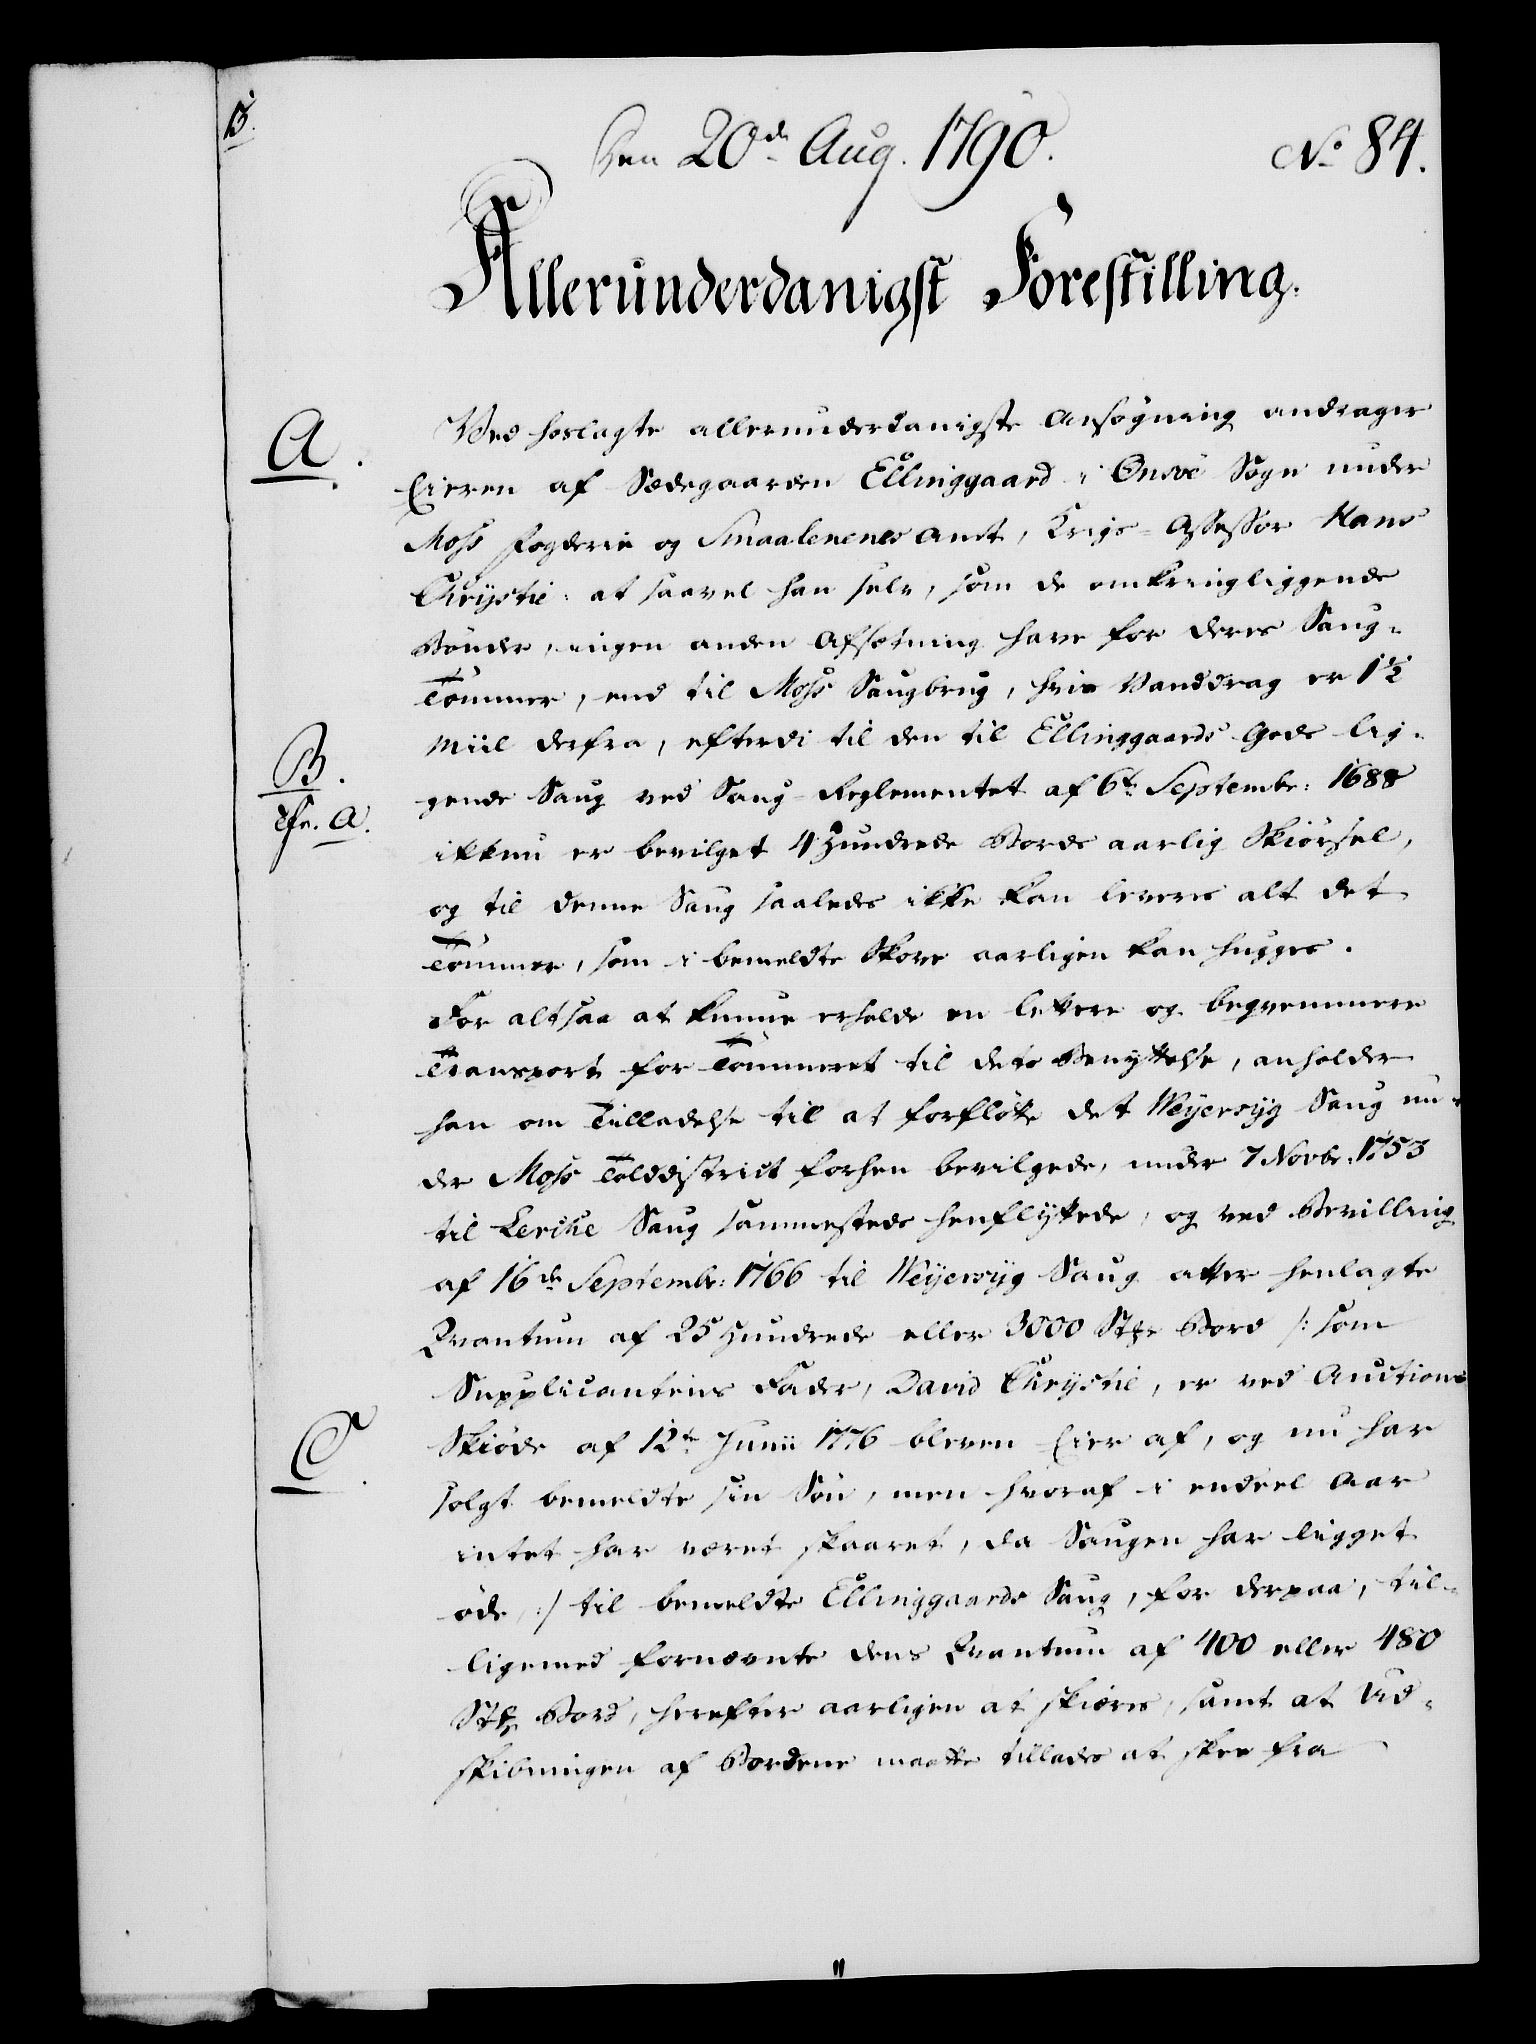 B.
Den 20de Aug. 1790.
No 84.
Allerunderdanigst Forestilling.
A.
Ved hoslagte allerunderdanigste Ansøgning andrager
Eieren af Sædegaarden Ellinggaard i Onsöe Sogn under
Moss Fogderie og Smaalenenes Amt, Krigs-Assessor Hans
Chrystie: at saavel han selv, som de omkringliggende
Bönder, ingen anden Afsætning have for deres Saug-
Tömmer, end til Moss Saugbrug, hvis Vanddrag er 1½
Miil derfra, efterdi til den til Ellinggaards Gods lig-
B.
cfr. A.
gende Saug ved Saug-Reglementet af 6te Septembr: 1688
ikkun er bevilget 4 Hundrede Bords aarlig Skiørsel,
og til denne Saug saaledes ikke kan leveres alt det
Tömmer, som i bemeldte Skove aarligen kan hugges.
For altsaa at kunne erholde en lettere og beqvemmere
Transport for Tömmeret til dets Benyttelse, anholder
han om Tilladelse til at forflötte det Weyersyg Saug un-
der Moss Tolddistrict forhen bevilgede, under 7 Novbr. 1753
til Lerche Saug sammesteds henflyttede, og ved Bevilling
af 16de Septembr: 1766 til Weyersyg Saug atter henlagte
Qvantum af 25 Hundrede eller 3000 Stkr Bord /: som
Supplicantens Fader, David Chrystie, er ved Auctions
C.
Skiöde af 12te Junii 1776 bleven Eier af, og nu har
solgt bemeldte sin Sön, men hvoraf i endeel Aar
intet har været skaaret, da Saugen har ligget
öde, :/ til bemeldte Ellinggaards Saug, for derpaa, til-
ligemed fornævnte dens Qvantum af 400 eller 480
Stkr Bord, herefter aarligen at skiæres, samt at Ud-
skibningen af Bordene maatte tillades at skee fra